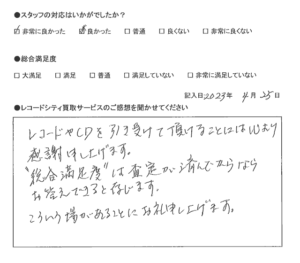 ●スタッフの対応はいかがでしたか？
☑ 非常に良かった ☑ 良かった □ 普通 □ 良くない □ 非常に良くない
●総合満足度
□ 大満足 □ 満足 □ 普通 □ 満足していない □ 非常に満足していない
記入日 2023年 4月 25日
●レコードシティ買取サービスのご感想を聞かせてください
レコードやCDを引き受けて頂けることには心より
感謝申し上げます。
"総合満足度"は査定が済んでからなら
お答えできると存じます。
こういう場があることにお礼申し上げます。